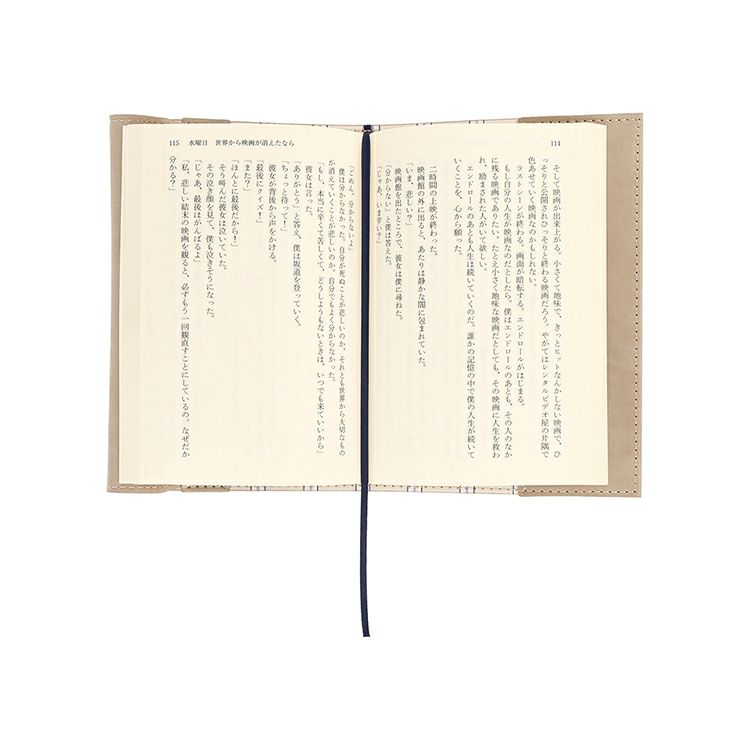 114
そして映画が出来上がる。小さくて地味で、きっとヒットなんかしない映画で、ひ
っそりと公開されひっそりと終わる映画だろう。やがてはレンタルビデオ屋の片隅で
色あせていく映画なのかもしれない。
ラストシーンが終わる。画面が暗転する。エンドロールがはじまる。
もし自分の人生が映画なのだとしたら。僕はエンドロールのあとも、その人のなか
に残る映画でありたい。たとえ小さく地味な映画だとしても、その映画に人生を救わ
れ、励まされた人がいて欲しい。
エンドロールのあとも人生は続いていくのだ。誰かの記憶の中で僕の人生が続いて
いくことを、心から願った。
二時間の上映が終わった。
映画館の外に出ると、あたりは静かな闇に包まれていた。
映画館を出たところで、彼女は僕に尋ねた。
「いま、悲しい?」
「分からない」と僕は答えた。
「じゃあ、いま辛い?」
115 水曜日 世界から映画が消えたなら
「ごめん、分からないよ」
僕は分からなかった。自分が死ぬことが悲しいのか、それとも世界から大切なもの
が消えていくことが悲しいのか。自分でもよく分からなかった。
「もし、本当に辛くて苦しくて、どうしようもないときは、いつでも来ていいから」
彼女は言った。
「ありがとう」と答え、僕は坂道を登っていく。
「ちょっと待って!」
彼女が背後から声をかける。
「最後にクイズ!」
「また?」
「ほんとに最後だから!」
そう叫んだ彼女は泣いていた。
その泣き顔を見て、僕も泣きそうになった。
「じゃあ、最後はがんばるよ」
「私、悲しい結末の映画を観ると、必ずもう一回観直すことにしているの。なぜだか
分かる?」